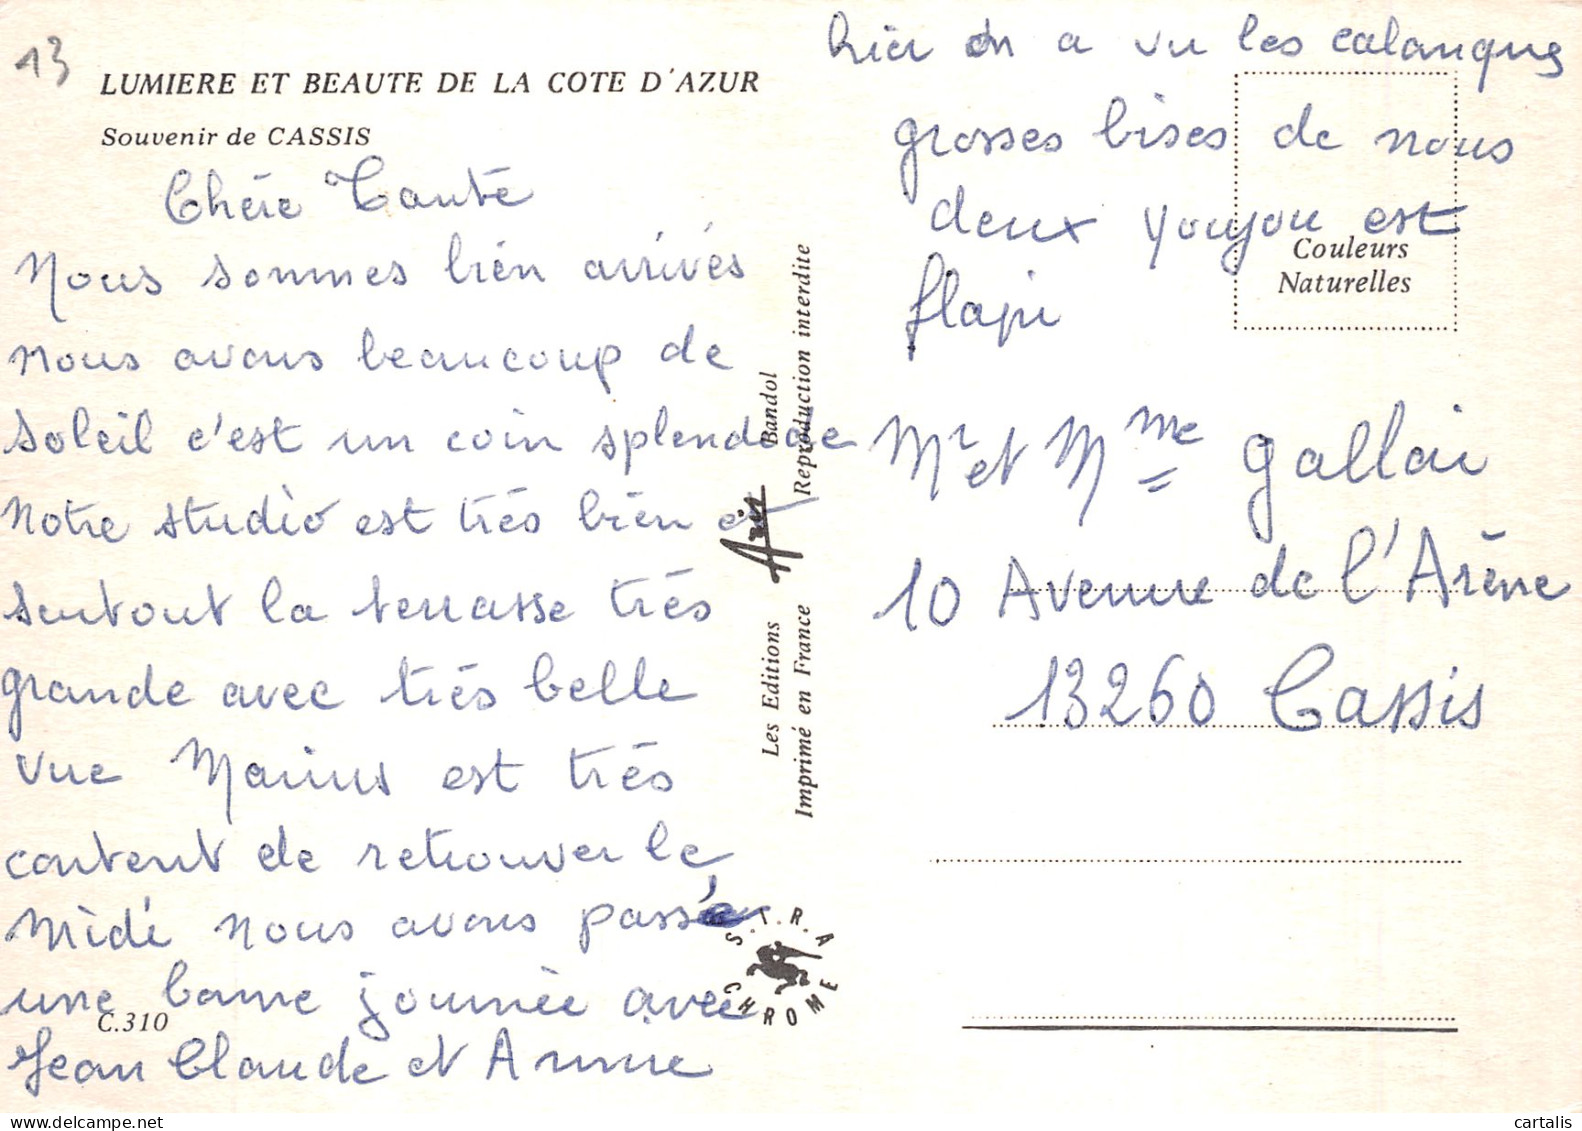 13
LUMIERE ET BEAUTE DE LA COTE D'AZUR
Souvenir de CASSIS
Chére Tante
Nous sommes bien arrivés
nous avons beaucoup de
soleil c'est un coin splendide
notre studio est trés bien et
surtout la terrasse trés
grande avec trés belle
vue Marius est trés
content de retrouver le
Midi nous avons passé
une bonne journée avec
Jean Claude et Anne
C.310
Les Editions Aris Bandol
Imprimé en France Reproduction interdite
S.T.R.A
CHROME
hier on a vu les calanques
grosses bises de nous
deux youyou est
flapi
Couleurs
Naturelles
Mr et Mme Gallai
10 Avenue de l'Arène
13260 Cassis
cartalis